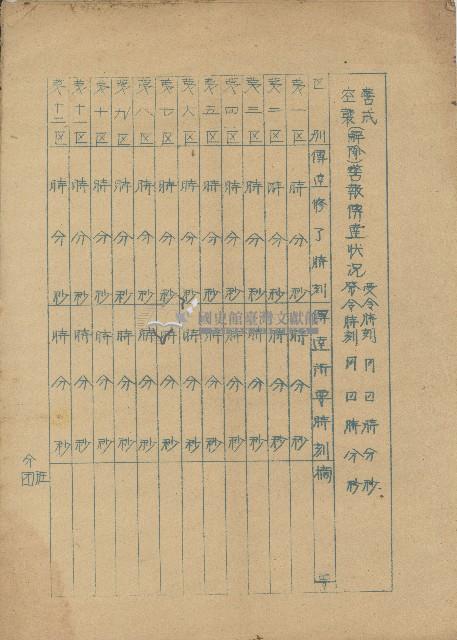 警戒
空襲(解除)警報傳達狀況 受令時刻 月 日 時 分 秒
發令時刻 月 日 時 分 秒
区別 傳達修了時刻 傳達所要時刻 摘
第一区 時 分 秒 時 分 秒
第二区 時 分 秒 時 分 秒
第三区 時 分 秒 時 分 秒
第四区 時 分 秒 時 分 秒
第五区 時 分 秒 時 分 秒
第六区 時 分 秒 時 分 秒
第七区 時 分 秒 時 分 秒
第八区 時 分 秒 時 分 秒
第九区 時 分 秒 時 分 秒
第十区 時 分 秒 時 分 秒
第十区 時 分 秒 時 分 秒
第十二区 時 分 秒 時 分 秒
分団
班
國史館臺灣文獻館